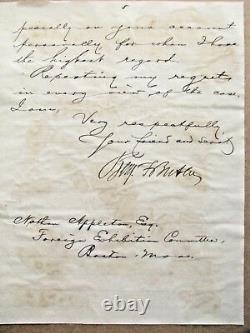 5
pecially on your account
personally for whom I have
the highest regard.
Repeating my regrets
in every view of the case,
I am,
Very respectfully
Your friend and servt
Benj F Butler
Nathan Appleton, Esq.
Foreign Exhibition Committee,
Boston Mass